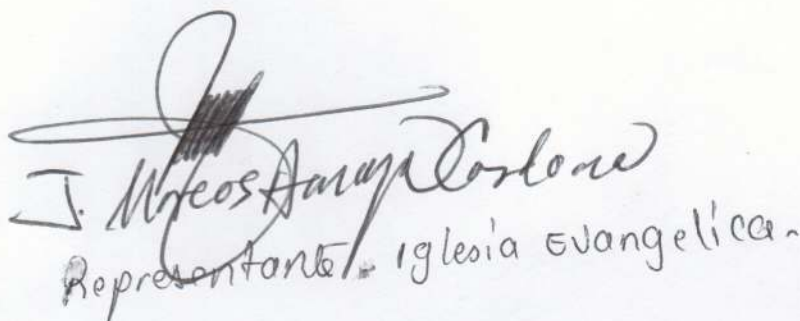 J. Marcos Amaya Cardona
Representante. Iglesia Evangelica.